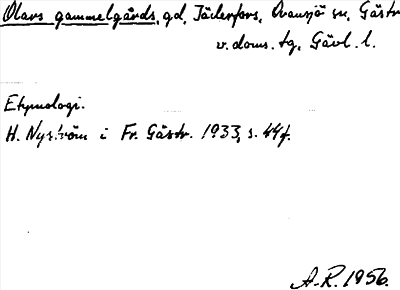 Olars gammelgårds, gd, Jäderfors, Ovansjö sn, Gästr
v. doms. tg, Gävl. l.
Etymologi.
H. Nyström i Fr. Gästr. 1933, s. 44f.
A.R. 1956.